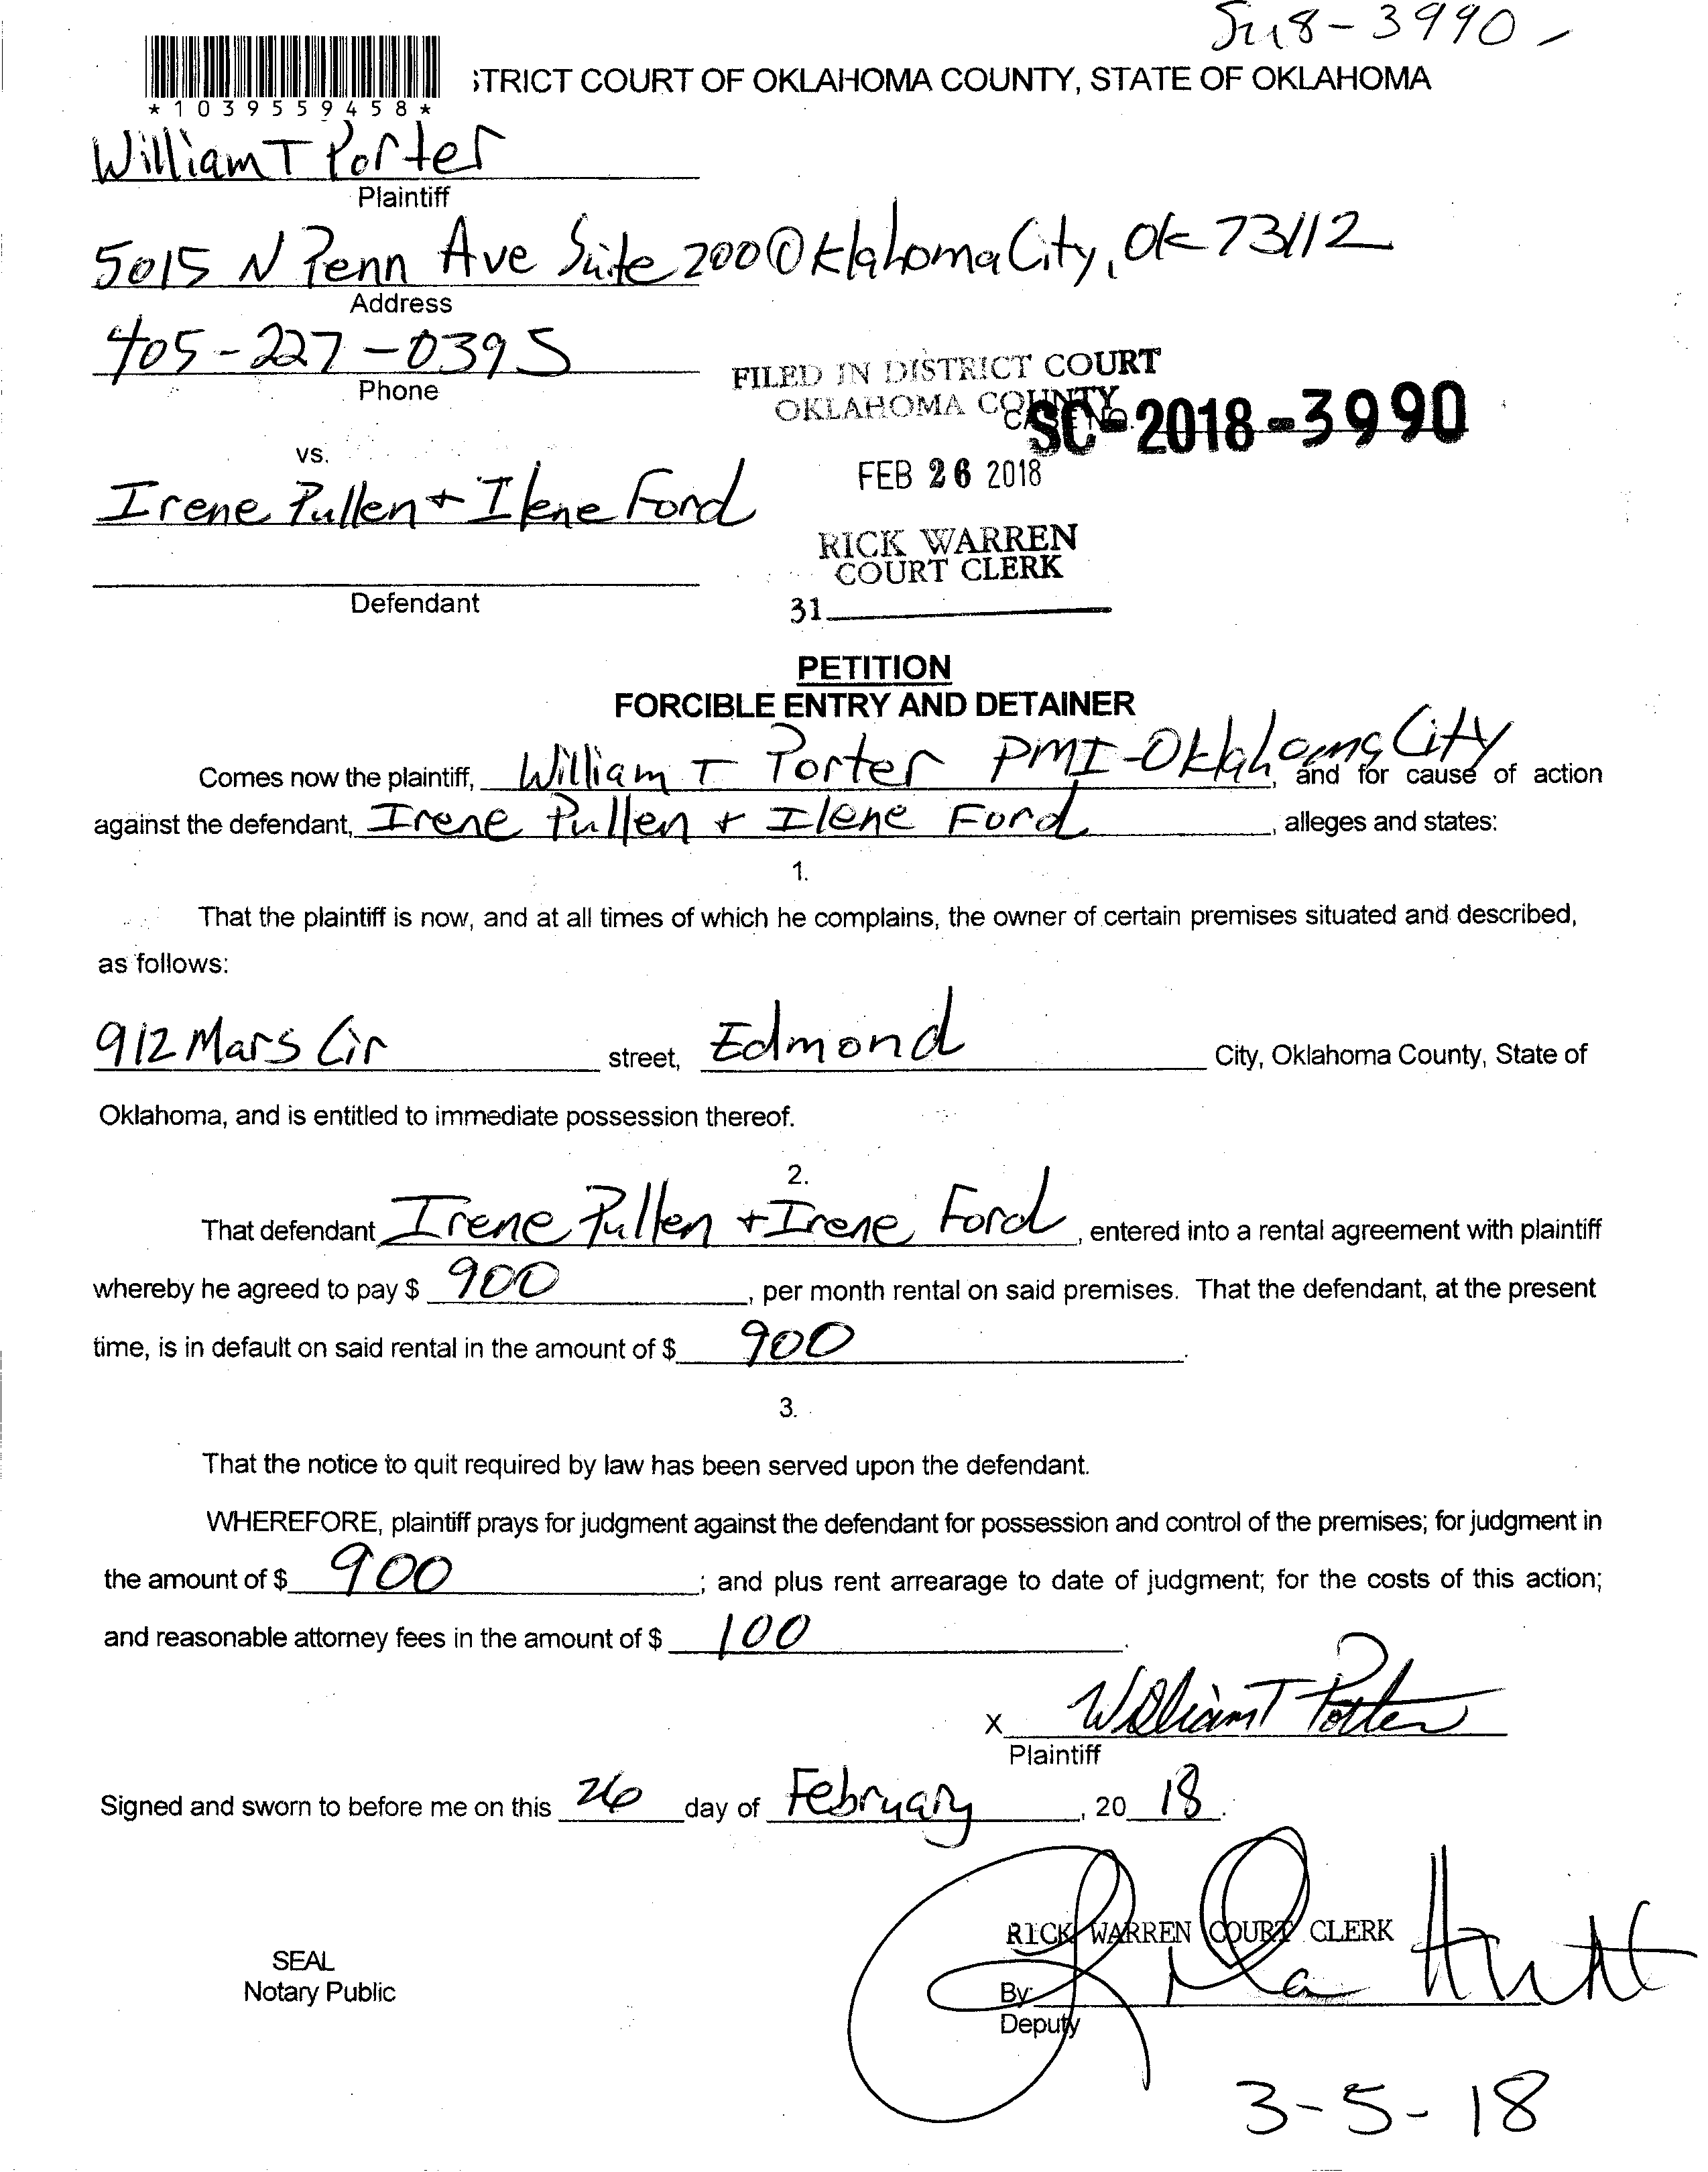 8-3990
*1039559458*
STRICT COURT OF OKLAHOMA COUNTY, STATE OF OKLAHOMA
William T Porter
Plaintiff
5015 N Penn Ave Suite 200 Oklahoma City, OK 73112
Address
405-227-0395
Phone
FILED IN DISTRICT COURT
OKLAHOMA COUNTY
SC-2018-3990
FEB 26 2018
vs.
Irene Pullen + Ilene Ford
RICK WARREN
COURT CLERK
Defendant
31
PETITION
FORCIBLE ENTRY AND DETAINER
Comes now the plaintiff, William T Porter PMI-Oklahoma City, and for cause of action
against the defendant, Irene Pullen + Ilene Ford, alleges and states:
1.
That the plaintiff is now, and at all times of which he complains, the owner of certain premises situated and described,
as follows:
912 Mars Cir street, Edmond City, Oklahoma County, State of
Oklahoma, and is entitled to immediate possession thereof.
2.
That defendant Irene Pullen + Irene Ford, entered into a rental agreement with plaintiff
whereby he agreed to pay $ 900, per month rental on said premises. That the defendant, at the present
time, is in default on said rental in the amount of $ 900.
3.
That the notice to quit required by law has been served upon the defendant.
WHEREFORE, plaintiff prays for judgment against the defendant for possession and control of the premises; for judgment in
the amount of $ 900; and plus rent arrearage to date of judgment; for the costs of this action;
and reasonable attorney fees in the amount of $ 100.
x William T Porter
Plaintiff
Signed and sworn to before me on this 26 day of February, 20 18.
RICK WARREN COURT CLERK
SEAL
Notary Public
By:
Deputy
3-5-18